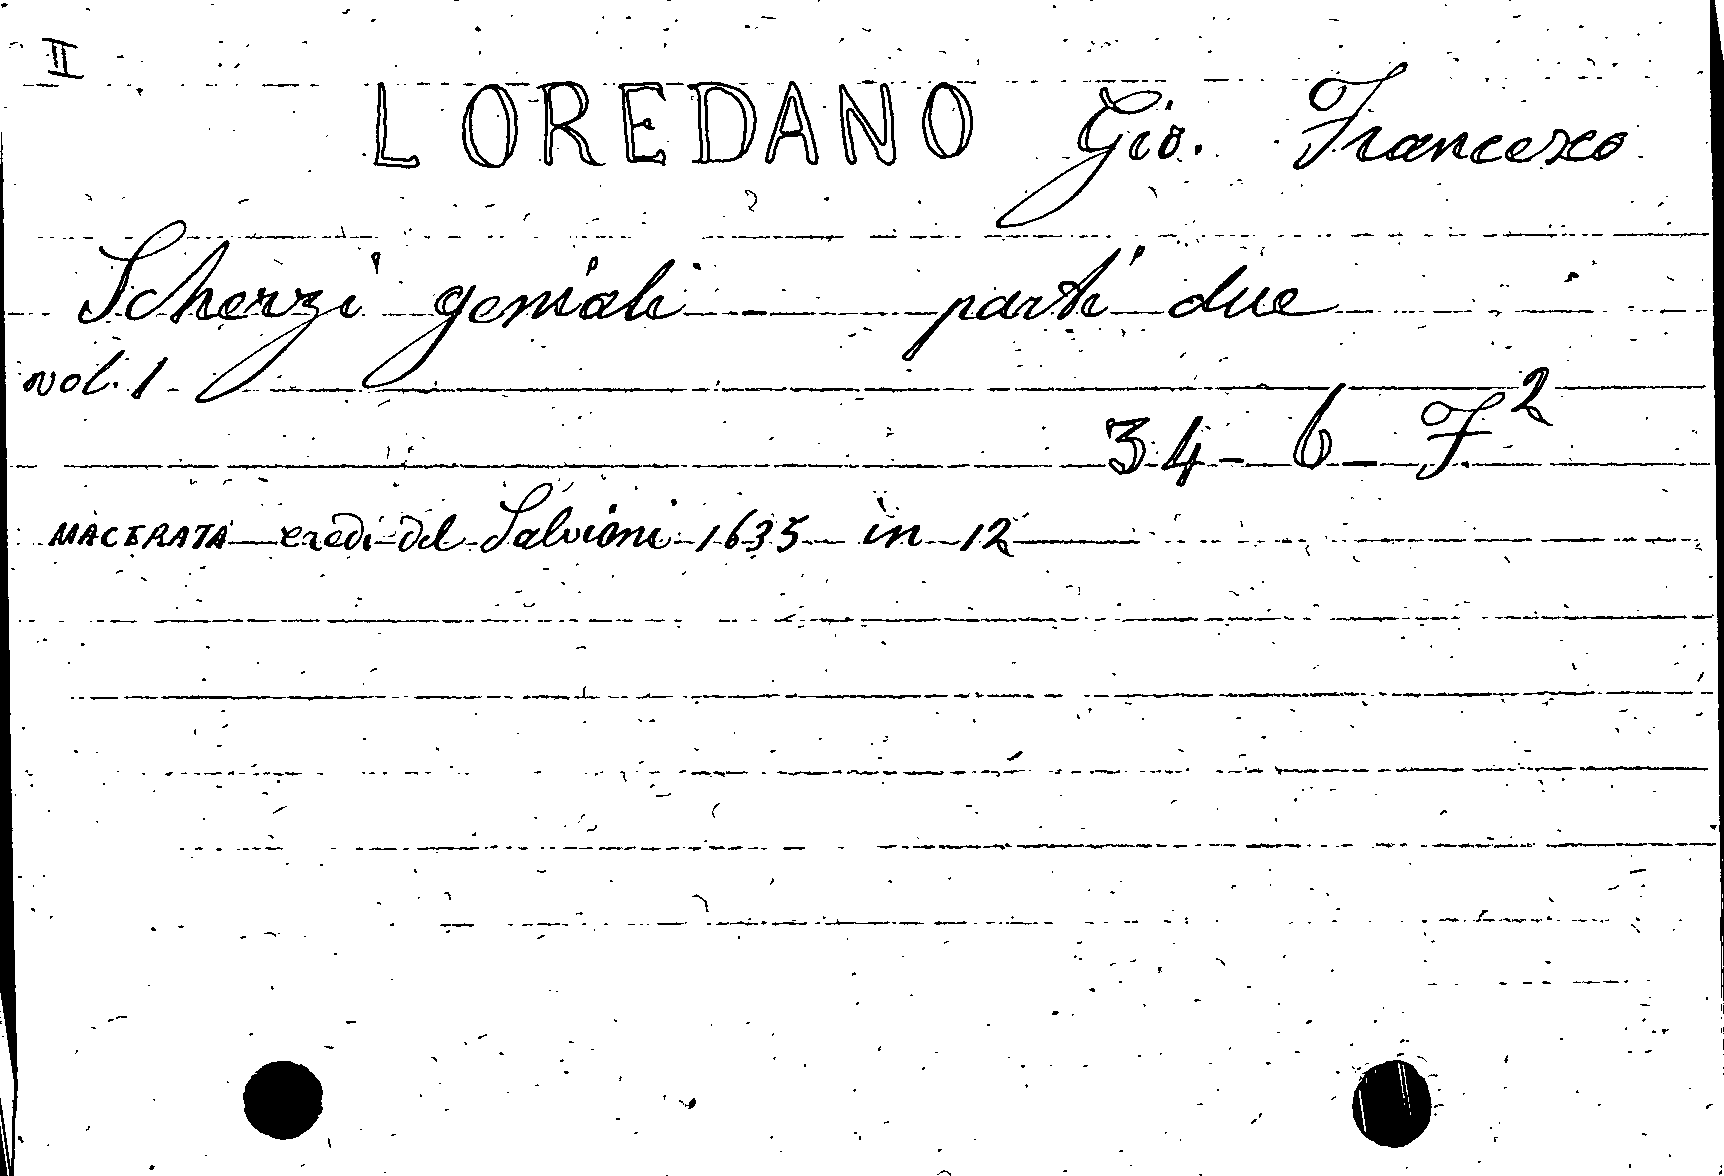 II
LOREDANO Gio. Francesco
Scherzi geniali - parti due
vol. 1
34-6-F2
MACERATA eredi del Salvioni 1635 in 12